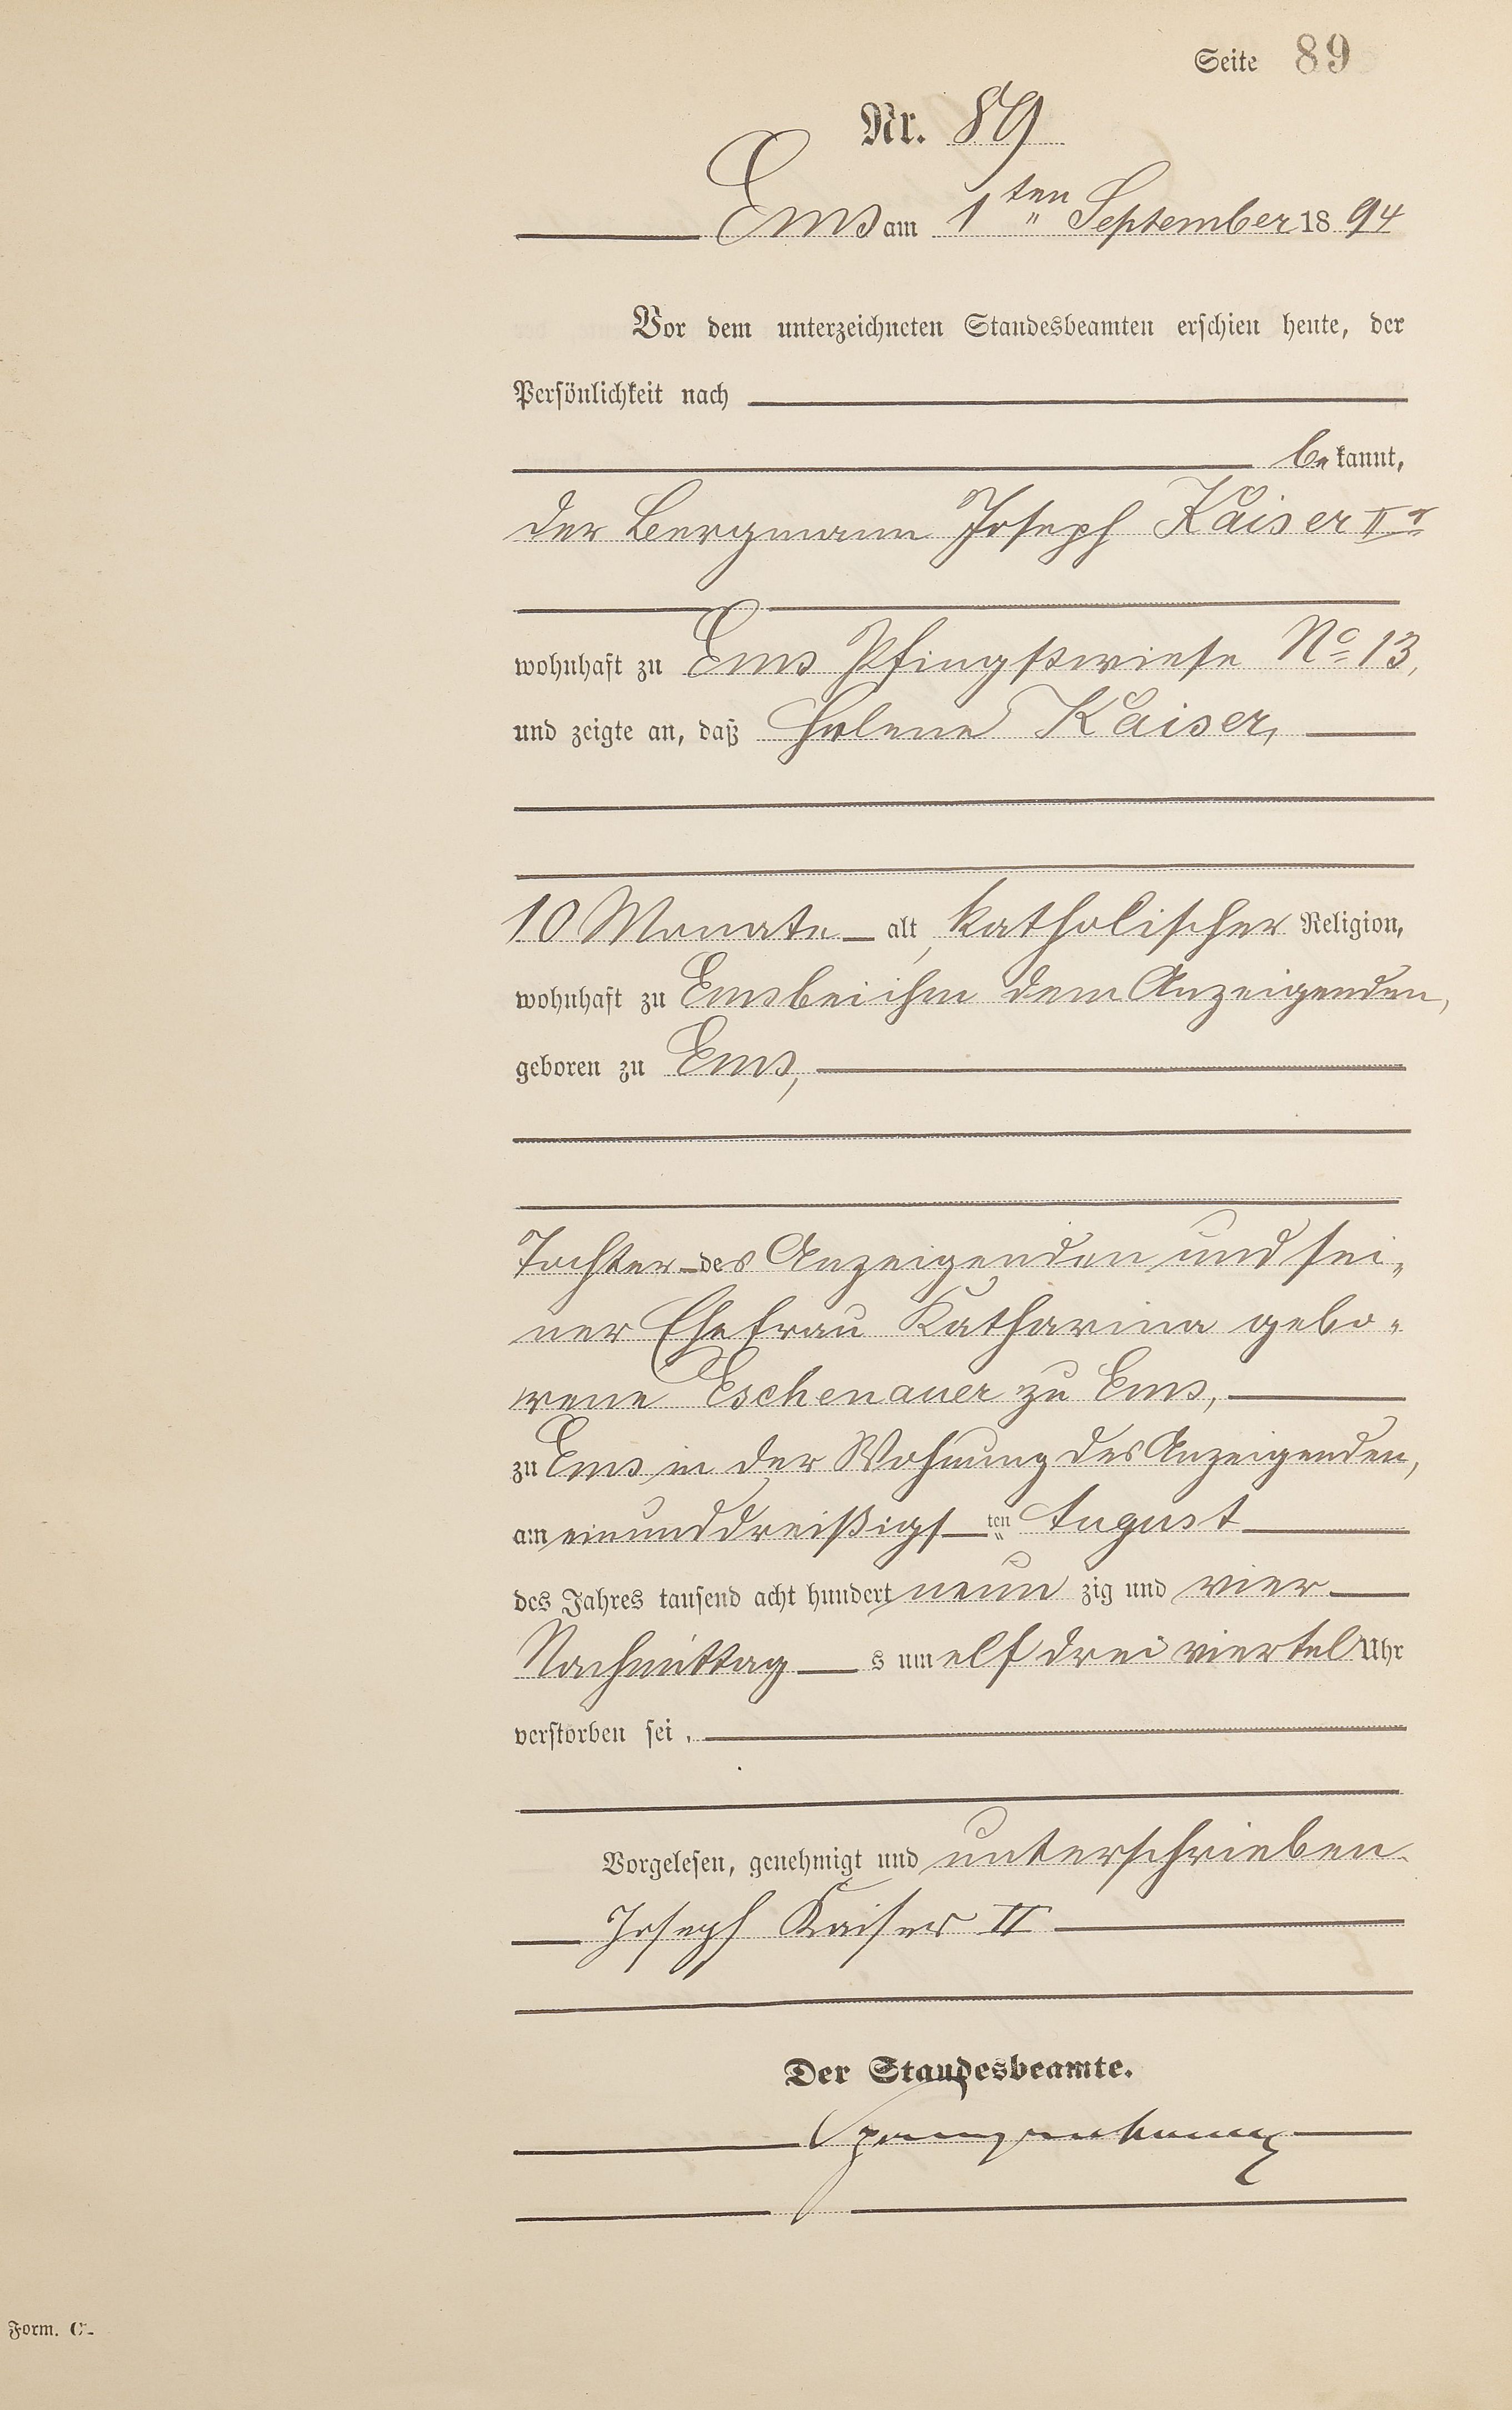 Seite 89
Nr. 89
Ems am 1ten September 1894
Vor dem unterzeichneten Standesbeamten erschien heute, der
Persönlichkeit nach
bekannt,
der Bergmann Joseph Kaiser IIr
wohnhaft zu Ems Pfingstwiese No 13,
und zeigte an, daß Helene Kaiser,
10 Monate alt, katholischer Religion,
wohnhaft zu Ems bei ihm dem Anzeigenden,
geboren zu Ems,
Tochter des Anzeigenden und sei„
ner Ehefrau Katharina gebo„
rene Eschenauer zu Ems,
zu Ems in der Wohnung des Anzeigenden,
am einunddreißigsten August
des Jahres tausend acht hundert neunzig und vier
Nachmittags um elf drei viertel Uhr
verstorben sei.
Vorgelesen, genehmigt und unterschrieben
Joseph Kaiser II
Der Standesbeamte.
Form. C.